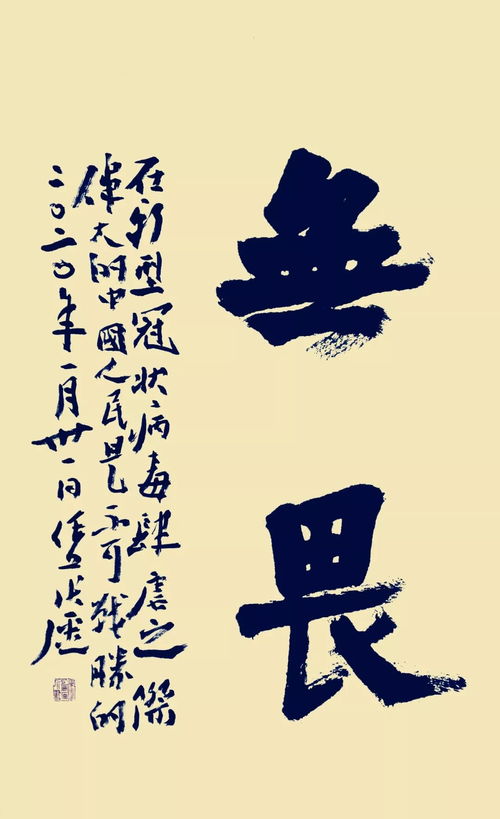 無畏
在新型冠狀病毒肆虐之際
偉大的中國人民是不可戰勝的
二〇二〇年一月卅一日